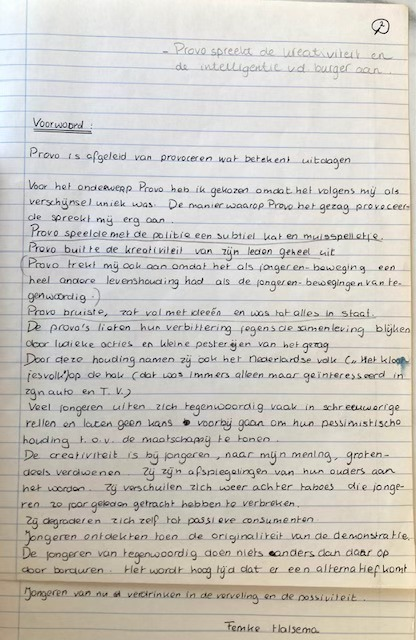 2
- Provo spreekt de kreativiteit en
de intelligentie v.d. burger aan.
Voorwoord:
Provo is afgeleid van provoceren wat betekent uitdagen
Voor het onderwerp Provo heb ik gekozen omdat het volgens mij als
verschijnsel uniek was. De manier waarop Provo het gezag provoceer-
de spreekt mij erg aan.
Provo speelde met de politie een subtiel kat en muisspelletje.
Provo buitte de kreativiteit van zijn leden geheel uit
(Provo trekt mij ook aan omdat het als jongeren-beweging een
heel andere levenshouding had als de jongeren-bewegingen van te-
genwoordig.)
Provo bruiste, zat vol met ideeën en was tot alles in staat.
De provo's lieten hun verbittering jegens de samenleving blijken
door ludieke acties en kleine pesterijen van het gezag
Door deze houding namen zij ook het Nederlandse volk ("Het kloot
jesvolk") op de hak (dat was immers alleen maar geïnteresseerd in
zijn auto en T.V.)
Veel jongeren uiten zich tegenwoordig vaak in schreeuwerige
rellen en laten geen kans voorbij gaan om hun pessimistische
houding t.o.v. de maatschappij te tonen.
De creativiteit is bij jongeren, naar mijn mening, groten-
deels verdwenen. Zij zijn afspiegelingen van hun ouders aan
het worden. Zij verschuilen zich weer achter taboes die jonge-
ren 20 jaar geleden getracht hebben te verbreken.
Zij degraderen zich zelf tot passieve consumenten
Jongeren ontdekten toen de originaliteit van de demonstratie.
De jongeren van tegenwoordig doen niets anders dan daar op
door borduren. Het wordt hoog tijd dat er een alternatief komt
Jongeren van nu verdrinken in de verveling en de passiviteit.
Femke Halsema